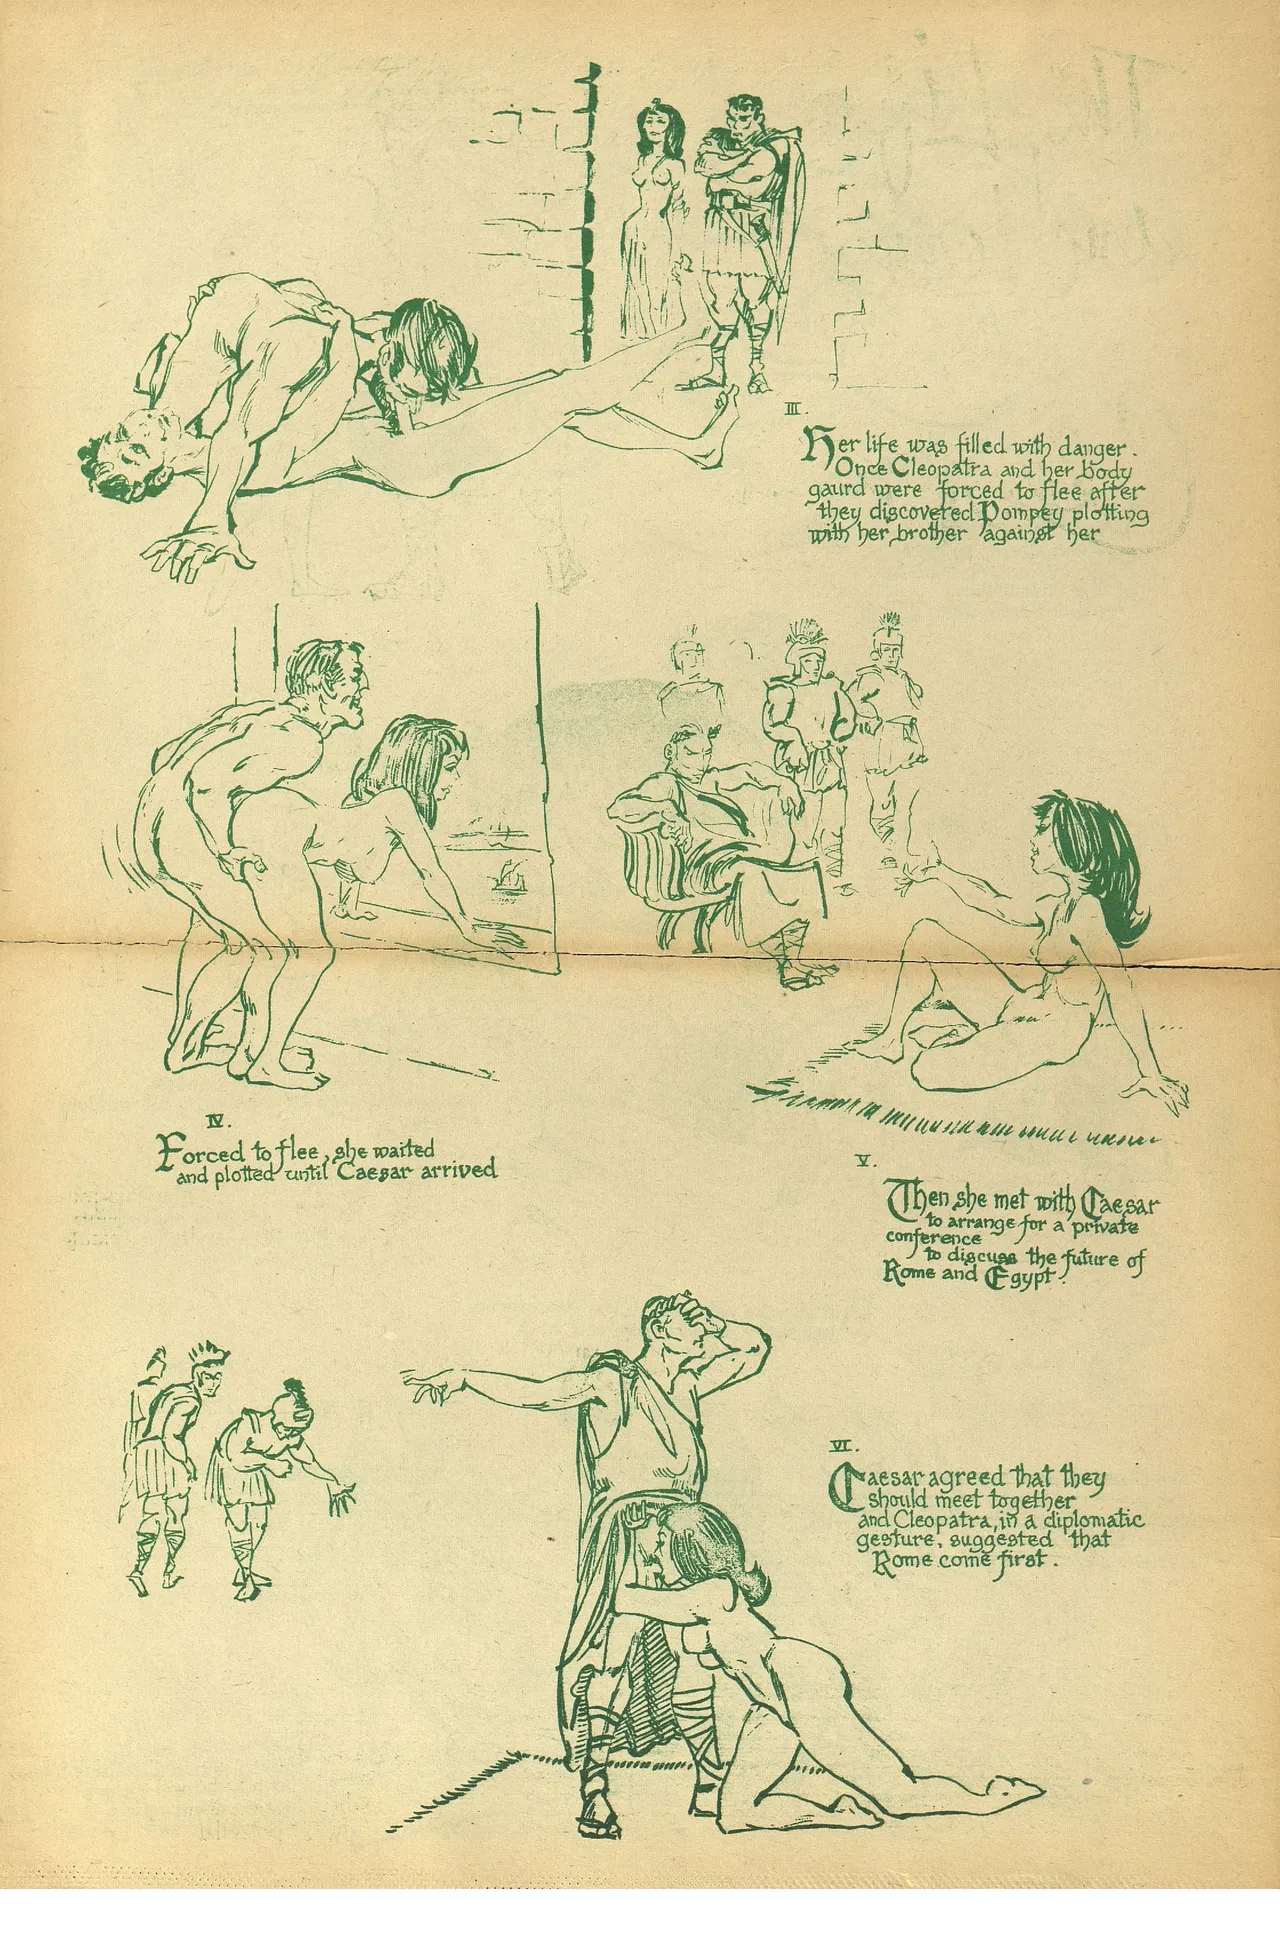 III.
Her life was filled with danger.
Once Cleopatra and her body
gaurd were forced to flee after
they discovered Pompey plotting
with her brother against her
IV.
Forced to flee, she waited
and plotted until Caesar arrived
V.
Then she met with Caesar
to arrange for a private
conference
to discuss the future of
Rome and Egypt.
VI.
Caesar agreed that they
should meet together
and Cleopatra, in a diplomatic
gesture, suggested that
Rome come first.